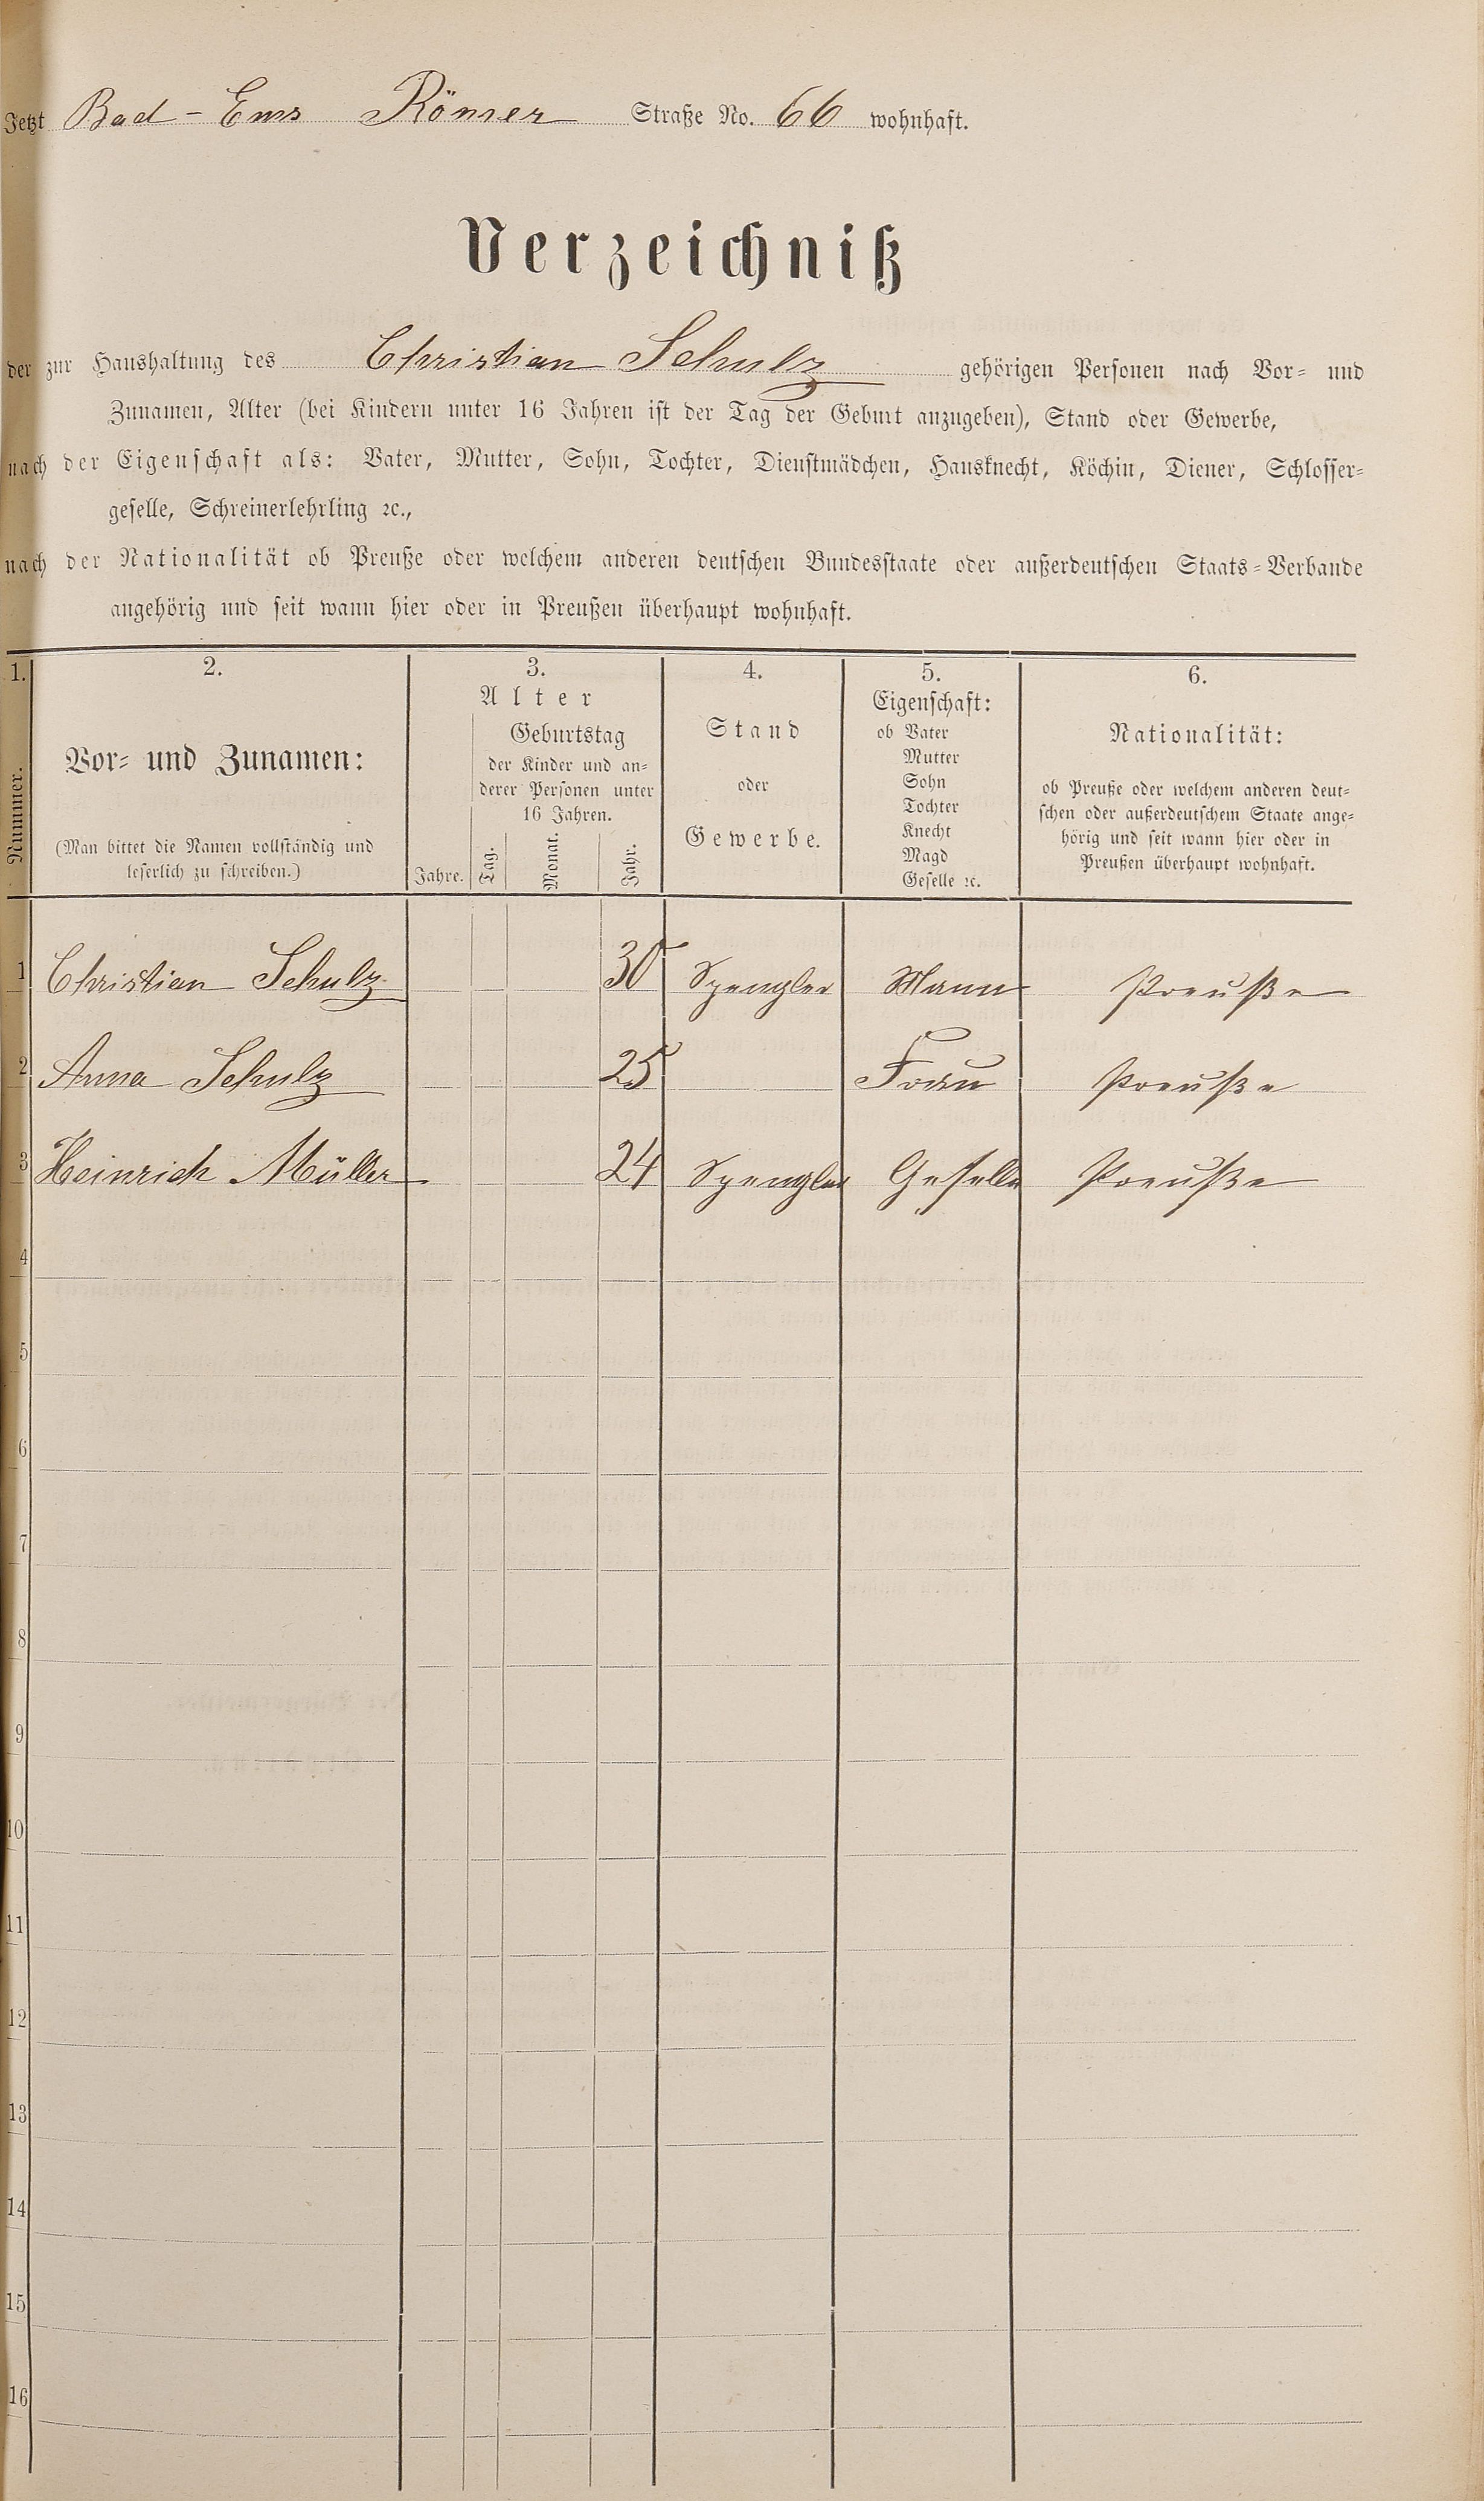 Jetzt Bad-Ems Römer Straße No. 66 wohnhaft.
Verzeichniß
der zur Haushaltung des Christian Schulz gehörigen Personen nach Vor- und
Zunamen, Alter (bei Kindern unter 16 Jahren ist der Tag der Geburt anzugeben), Stand oder Gewerbe,
nach der Eigenschaft als: Vater, Mutter, Sohn, Tochter, Dienstmädchen, Hausknecht, Köchin, Diener, Schlosser-
geselle, Schreinerlehrling ꝛc.,
nach der Nationalität ob Preuße oder welchem anderen deutschen Bundesstaate oder außerdeutschen Staats-Verbande
angehörig und seit wann hier oder in Preußen überhaupt wohnhaft.
1. 2. 3. 4. 5. 6.
Nummer.
Vor- und Zunamen:
(Man bittet die Namen vollständig und
leserlich zu schreiben.)
Alter
Geburtstag
der Kinder und an-
derer Personen unter
16 Jahren.
Jahre. Tag. Monat. Jahr.
Stand
oder
Gewerbe.
Eigenschaft:
ob Vater
Mutter
Sohn
Tochter
Knecht
Magd
Geselle ꝛc.
Nationalität:
ob Preuße oder welchem anderen deut-
schen oder außerdeutschem Staate ange-
hörig und seit wann hier oder in
Preußen überhaupt wohnhaft.
1 Christian Schulz 30 Spengler Mann Preuße
2 Anna Schulz 25 Frau Preuße
3 Heinrich Müller 24 Spengler Geselle Preuße
4
5
6
7
8
9
10
11
12
13
14
15
16